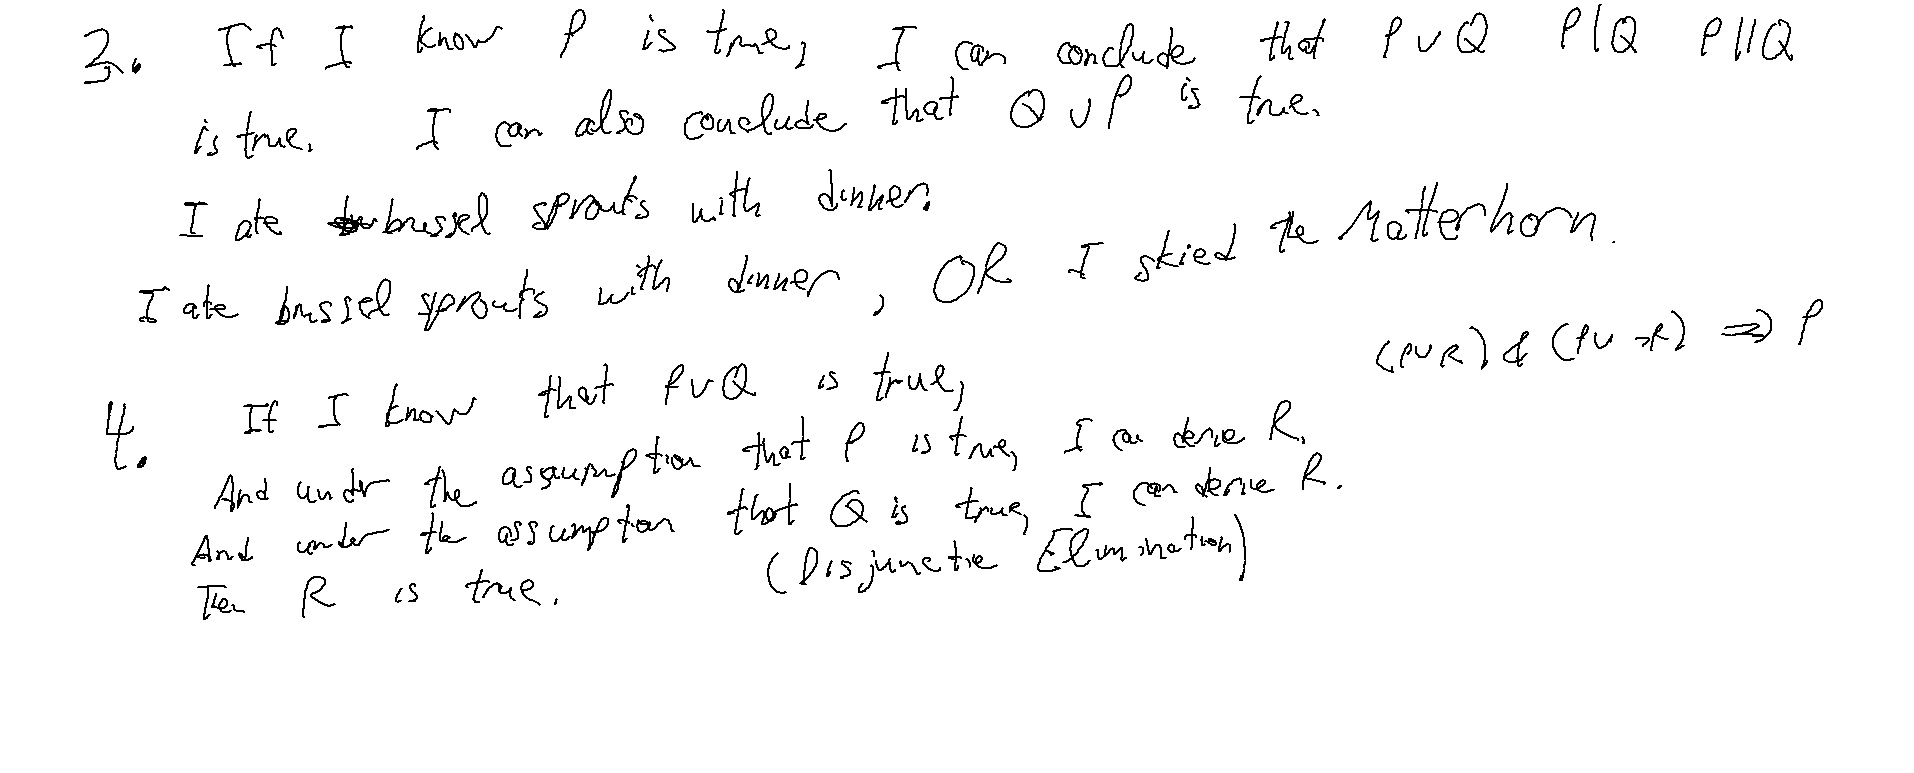 3. If I know P is true, I can conclude that P ∨ Q P|Q P||Q
is true. I can also conclude that Q ∨ P is true.
I ate brussel sprouts with dinner.
I ate brussel sprouts with dinner, OR I skied the Matterhorn.
(P∨R) & (P∨ ¬R) ⇒ P
4. If I know that P∨Q is true,
And under the assumption that P is true, I can derive R.
And under the assumption that Q is true, I can derive R.
Then R is true. (Disjunctive Elimination)